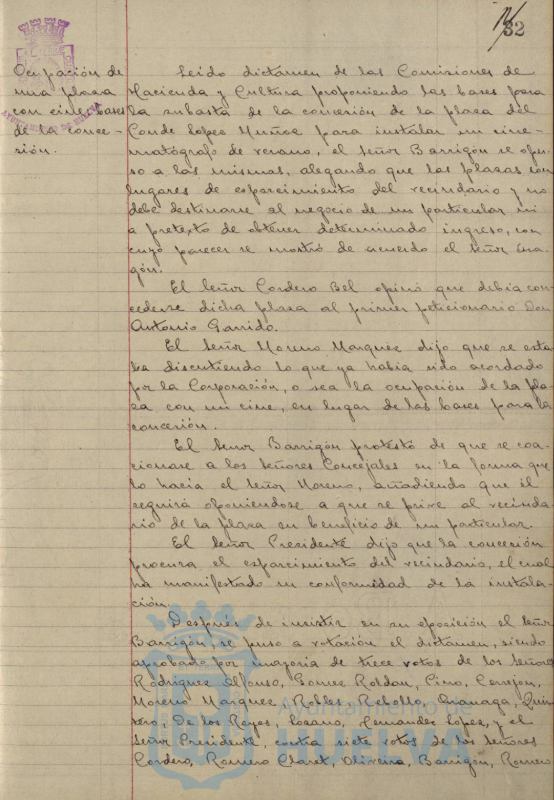 32
Ocupación de
una plaza
con cine, bases
de la conce-
sión.
Leido dictámen de las Comisiones de
Hacienda y Cultura proponiendo las bases para
la subasta de la concesión de la plaza del
Conde Lopez Muñoz para instalar un cine-
matógrafo de verano, el Señor Barrigón se opu-
so a las mismas, alegando que las plazas son
lugares de esparcimiento del vecindario y no
debe destinarse al negocio de un particular ni
a pretexto de obtener determinado ingreso, con
cuyo parecer se mostró de acuerdo el Señor
gón.
El Señor Cordero Bel opinó que debia con-
cederse dicha plaza al primer peticionario Don
Antonio Garrido.
El Señor Moreno Marquez dijo que se esta-
ba discutiendo lo que ya habia sido acordado
por la Corporación, o sea la ocupación de la pla-
za con un cine, en lugar de las bases para la
concesión.
El Señor Barrigón protestó de que se coa-
cionase a los Señores Concejales en la forma que
lo hacia el Señor Moreno, añadiendo que él
seguirá oponiendose a que se prive al vecinda-
rio de la plaza en beneficio de un particular.
El Señor Presidente dijo que la concesión
procura el esparcimiento del vecindario, el cual
ha manifestado su conformidad de la instala-
ción.
Después de insistir en su oposición el Señor
Barrigón, se puso a votación el dictámen, siendo
aprobado por mayoria de trece votos de los Señores
Rodriguez Alfonso, Gomez Roldan, Pino, Cerrejon,
Moreno Marquez, Robles, Rebollo, Quin-
tero, De los Reyes, Lozano, Fernandez Lopez, y el
Señor Presidente, contra siete votos de los Señores
Cordero, Romero Claret, Oliveira, Barrigón, Romero
Ayuntamiento de
HUELVA